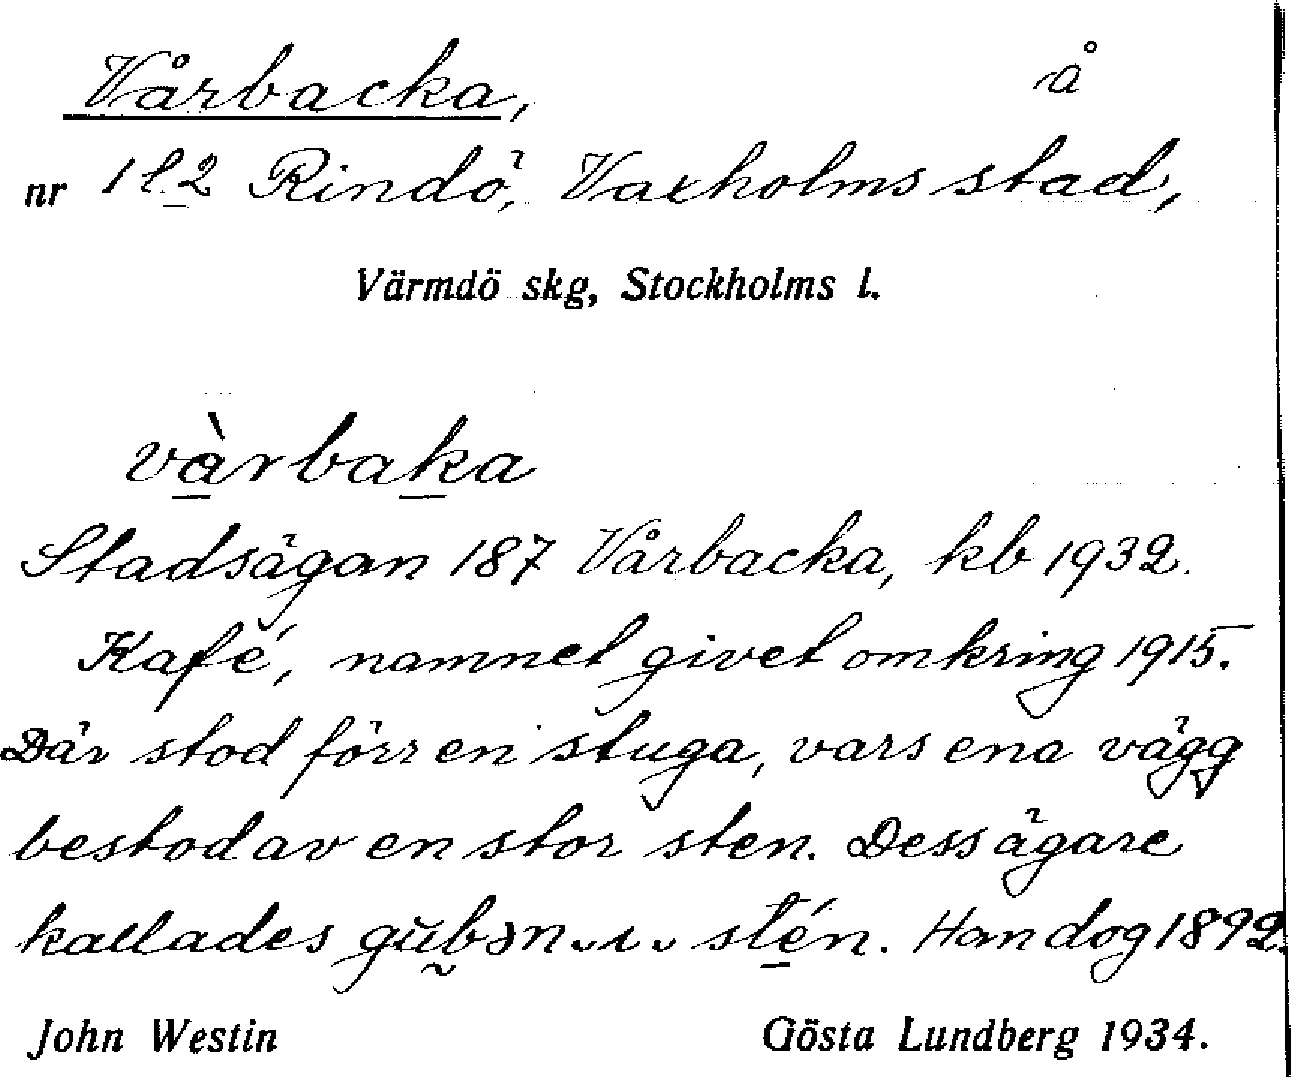 Vårbacka, å
nr 1 l.2 Rindö, Vaxholms stad,
Värmdö skg, Stockholms l.
và̱rbaḵa
Stadsägan 187 Vårbacka, kb 1932.
Kafé, namnet givet omkring 1915.
Där stod förr en stuga, vars ena vägg
bestod av en stor sten. Dess ägare
kallades gŭb̰ən ı sté̱n. Han dog 1892.
John Westin Gösta Lundberg 1934.